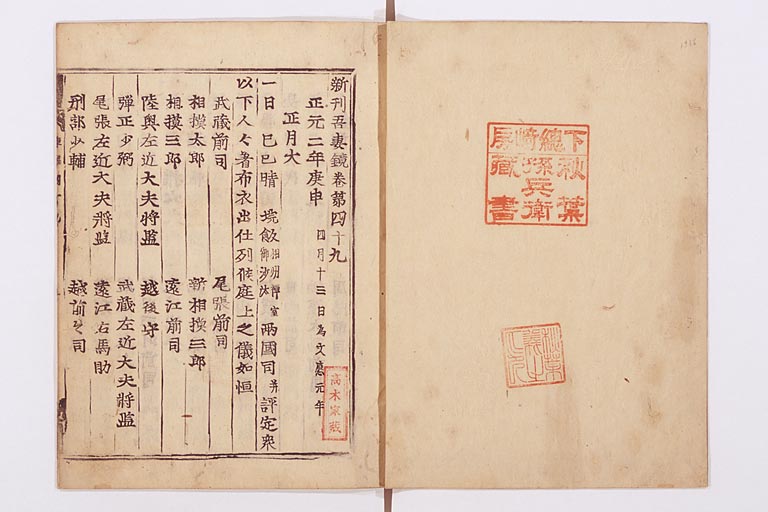 下總崎房
秋葉孫兵衛
藏書
新刊吾妻鏡卷第四十九
正元二年庚申 四月十三日為文應元年
正月大
一日己巳晴 埦飯相州禅室御沙汰兩國司并評定衆
以下人々着布衣出仕列候庭上之儀如恒
武藏前司 尾張前司
相摸太郎 新相摸三郎
相摸三郎 遠江前司
陸奥左近大夫將監 越後守
彈正少弼 武藏左近大夫將監
尾張左近大夫將監 遠江右馬助
刑部少輔 越前々司
高木家藏